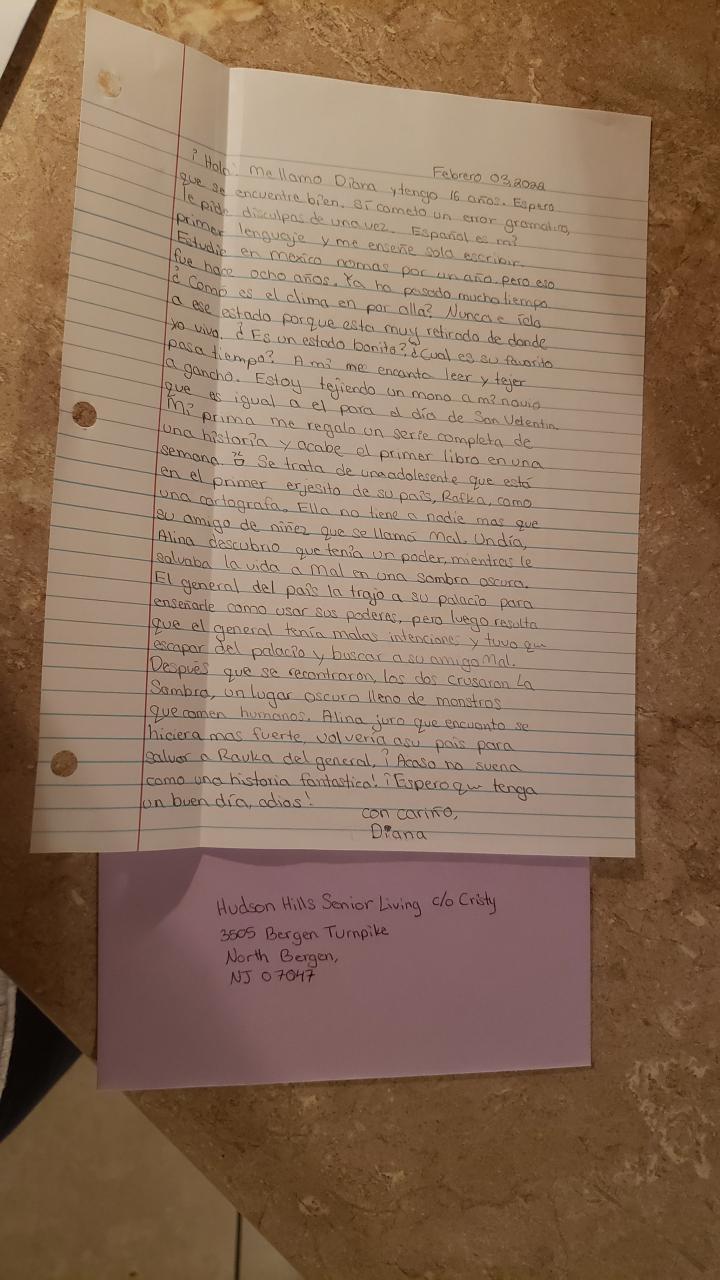 Febrero 03, 2022
¡Hola! Me llamo Diana y tengo 16 años. Espero
que se encuentre bien. Sí cometo un error gramatico,
le pido disculpas de una vez. Español es mi
primer lenguaje y me enseñe sola escribir.
Estudie en mexico nomas por un año, pero eso
fue hace ocho años. Ya ha pasado mucho tiempo
¿Como es el clima en por alla? Nunca e ido
a ese estado porque esta muy retirado de donde
yo vivo. ¿Es un estado bonito? ¿Cual es su favorito
pasa tiempo? A mi me encanta leer y tejer
a gancho. Estoy tejiendo un mono a mi novio
que es igual a el para el día de San Velentin.
Mi prima me regalo un serie completa de
una historia y acabe el primer libro en una
semana. Se trata de una adolesente que está
en el primer erjesito de su país, Rafka, como
una cartografa. Ella no tiene a nadie mas que
su amigo de niñez que se llama Mal. Un día,
Alina descubrio que tenía un poder, mientras le
salvaba la vida a Mal en una sombra oscura.
El general del país la trajo a su palacio para
enseñarle como usar sus poderes, pero luego resulta
que el general tenía malas intenciones y tuvo que
escapar del palacio y buscar a su amigo Mal.
Después que se recontraron, los dos crusaron La
Sombra, un lugar oscuro lleno de monstros
que comen humanos. Alina juro que encuanto se
hiciera mas fuerte, volvería a su país para
salvar a Ravka del general. ¡Acaso no suena
como una historia fantastica! ¡Espero que tenga
un buen día, adios!
con cariño,
Diana
Hudson Hills Senior Living c/o Cristy
3505 Bergen Turnpike
North Bergen,
NJ 07047